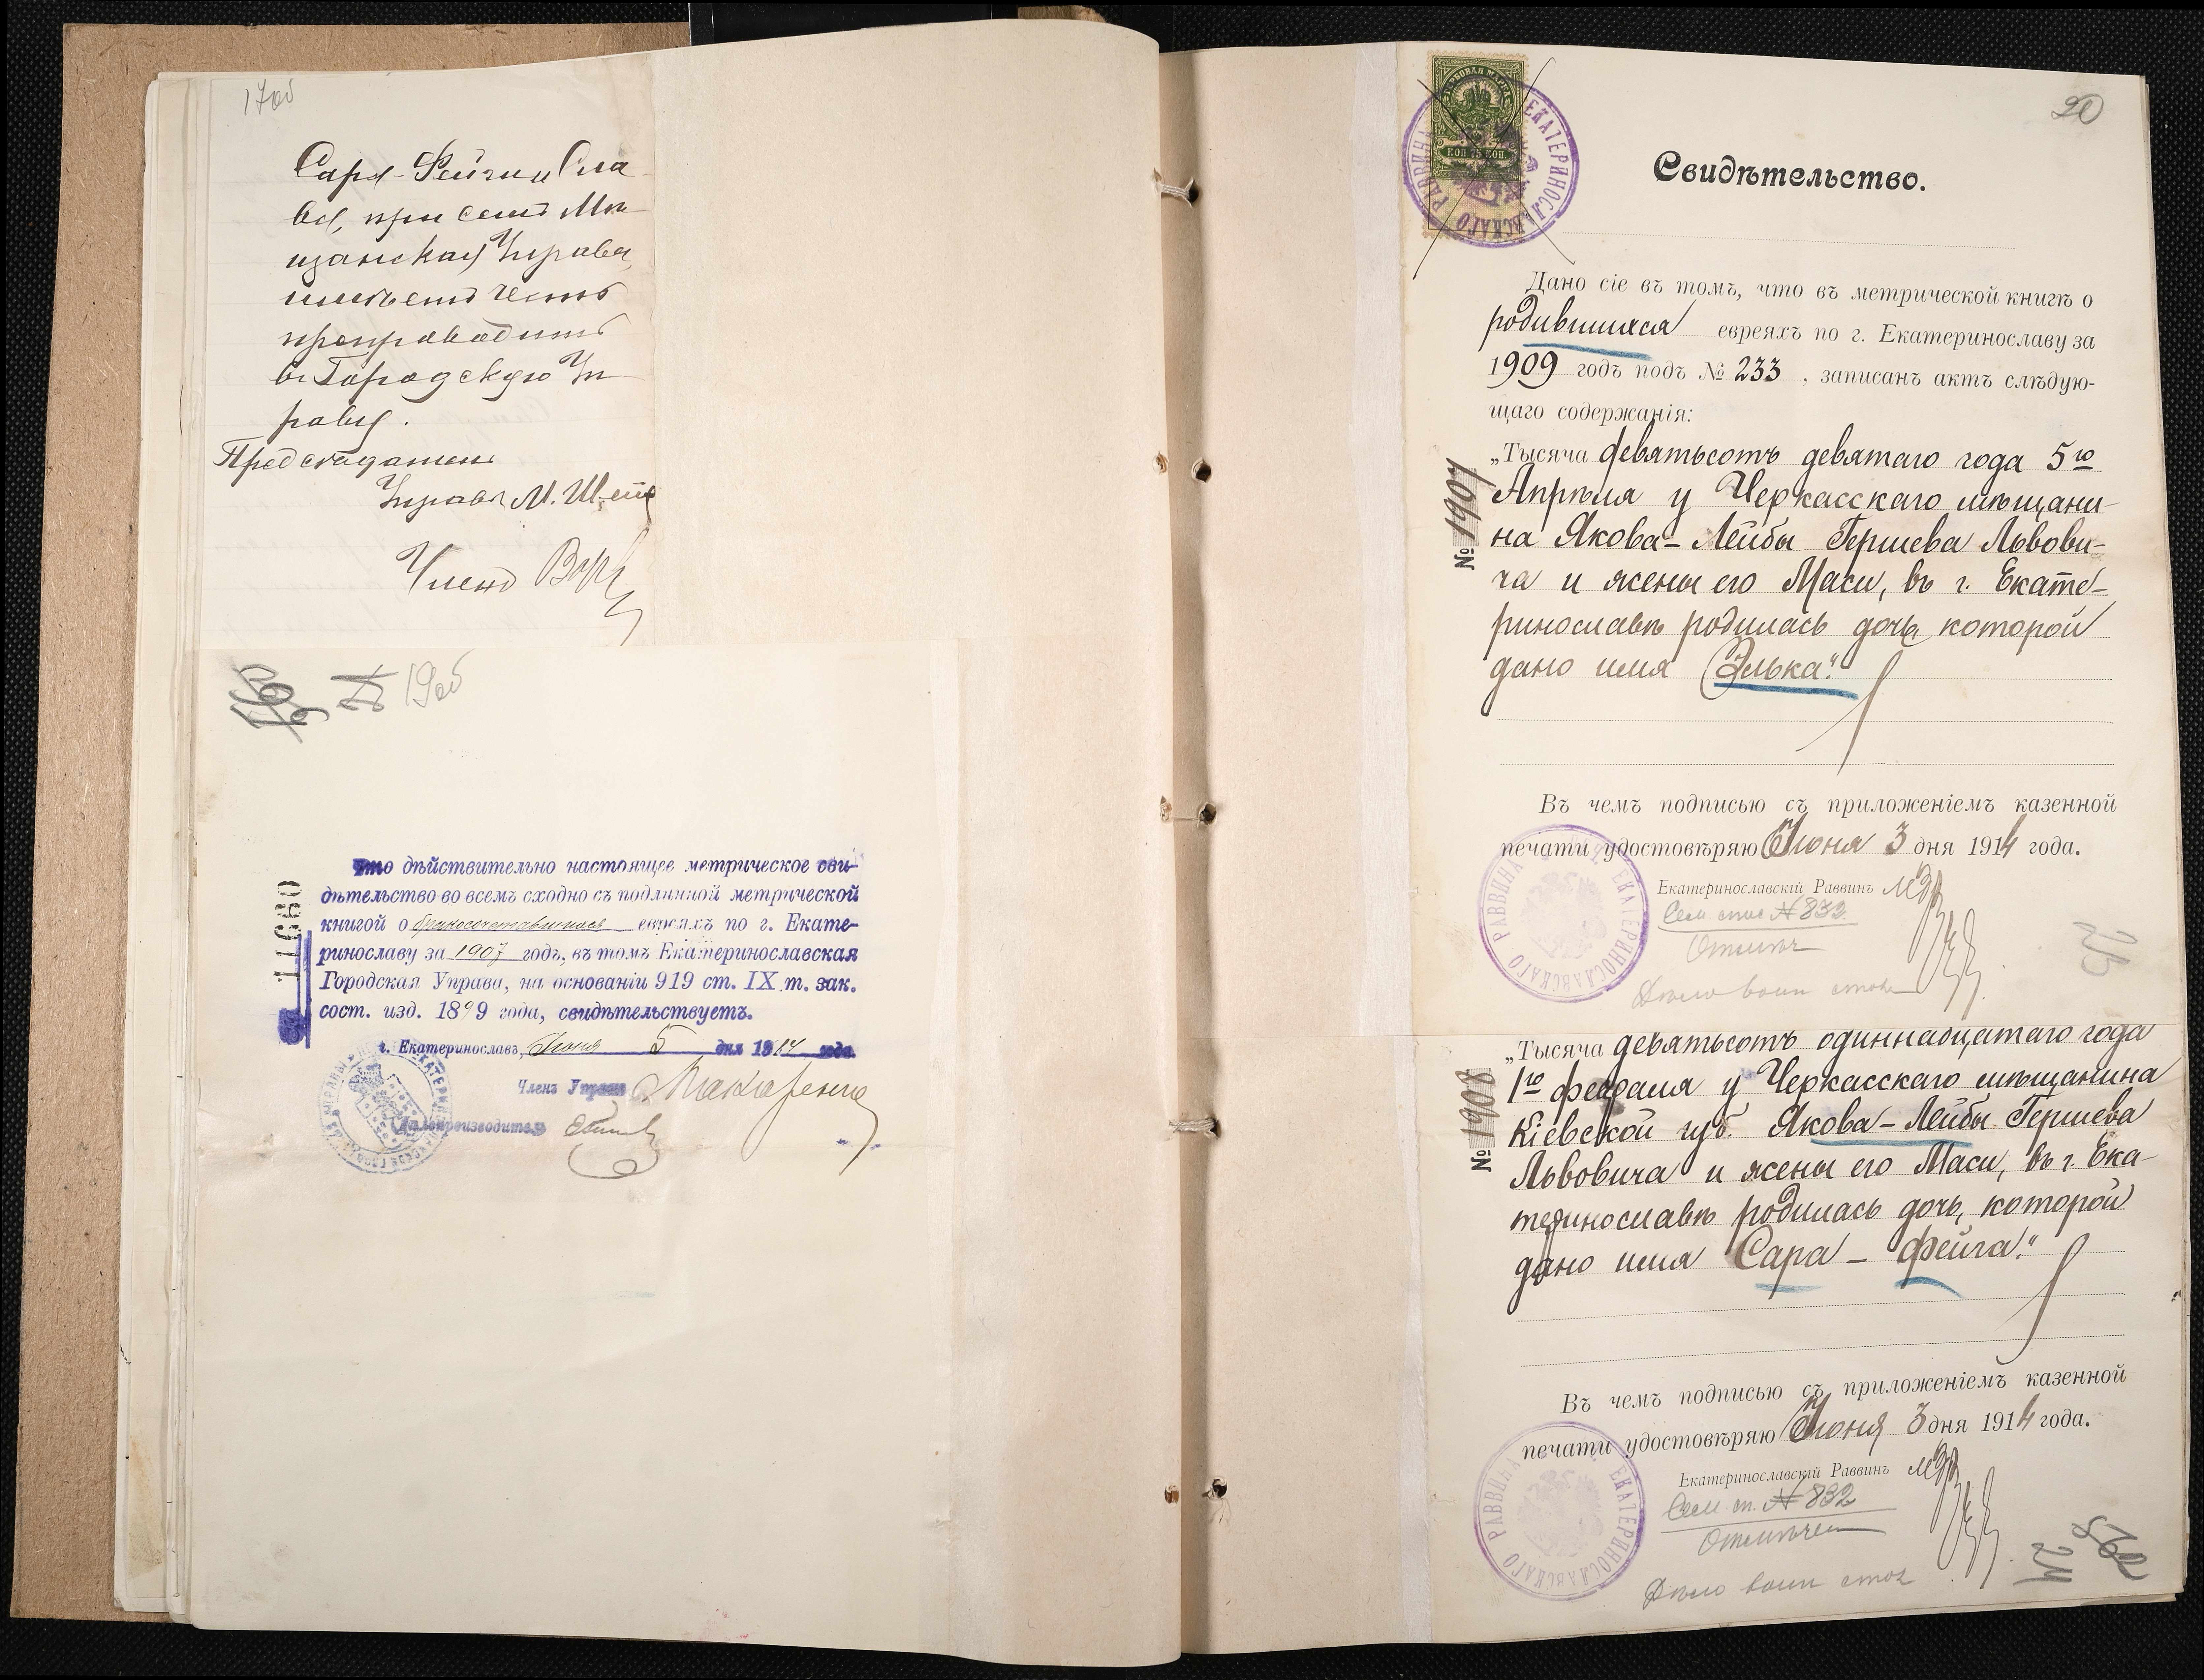 17об
Сара-Фейги Сла
ва, при семъ Мѣ
щанская Управа,
имѣетъ честь
препроводить
въ Городскую Уп
раву.
Предсѣдатель
Управы М.
Членъ
19об
Что дѣйствительно настоящее метрическое сви-
дѣтельство во всемъ сходно съ подлинной метрической
книгой о бракосочетавшихся евреяхъ по г. Екате-
ринославу за 1907 годъ, въ томъ Екатеринославская
Городская Управа, на основаніи 919 ст. IX т. зак.
сост. изд. 1899 года, свидѣтельствуетъ.
г. Екатеринославъ, Іюня 5 дня 1914 года.
Членъ Управы Макаренко
Дѣлопроизводитель
11680
20
ГЕРБОВАЯ МАРКА
КОП 75 КОП.
ЕКАТЕРИНОСЛАВСКАГО РАВВИНА
Свидѣтельство.
Дано сіе въ томъ, что въ метрической книгѣ о
родившихся евреяхъ по г. Екатеринославу за
1909 годъ подъ № 233, записанъ актъ слѣдую-
щаго содержанія:
№ 1907
„Тысяча девятьсотъ девятаго года 5го
Апрѣля у Черкасскаго мѣщани-
на Якова-Лейбы Гершева Львови-
ча и жены его Маси, въ г. Екате-
ринославѣ родилась дочь, которой
дано имя Элька."
Въ чемъ подписью съ приложеніемъ казенной
печати удостовѣряю Іюня 3 дня 1914 года.
Екатеринославскій Раввинъ
Сем. спис № 832
ЕКАТЕРИНОСЛАВСКАГО РАВВИНА
Дѣло воин стол
25
№ 1908
„Тысяча девятьсотъ одиннадцатаго года
1го февраля у Черкасскаго мѣщанина
Кіевской губ. Якова-Лейбы Гершева
Львовича и жены его Маси, въ г. Ека-
теринославѣ родилась дочь, которой
дано имя Сара-Фейга."
Въ чемъ подписью съ приложеніемъ казенной
печати удостовѣряю Іюня 3 дня 1914 года.
Екатеринославскій Раввинъ
Сем. сп. № 832
Отмѣчен
ЕКАТЕРИНОСЛАВСКАГО РАВВИНА
Дѣло воин стол
24